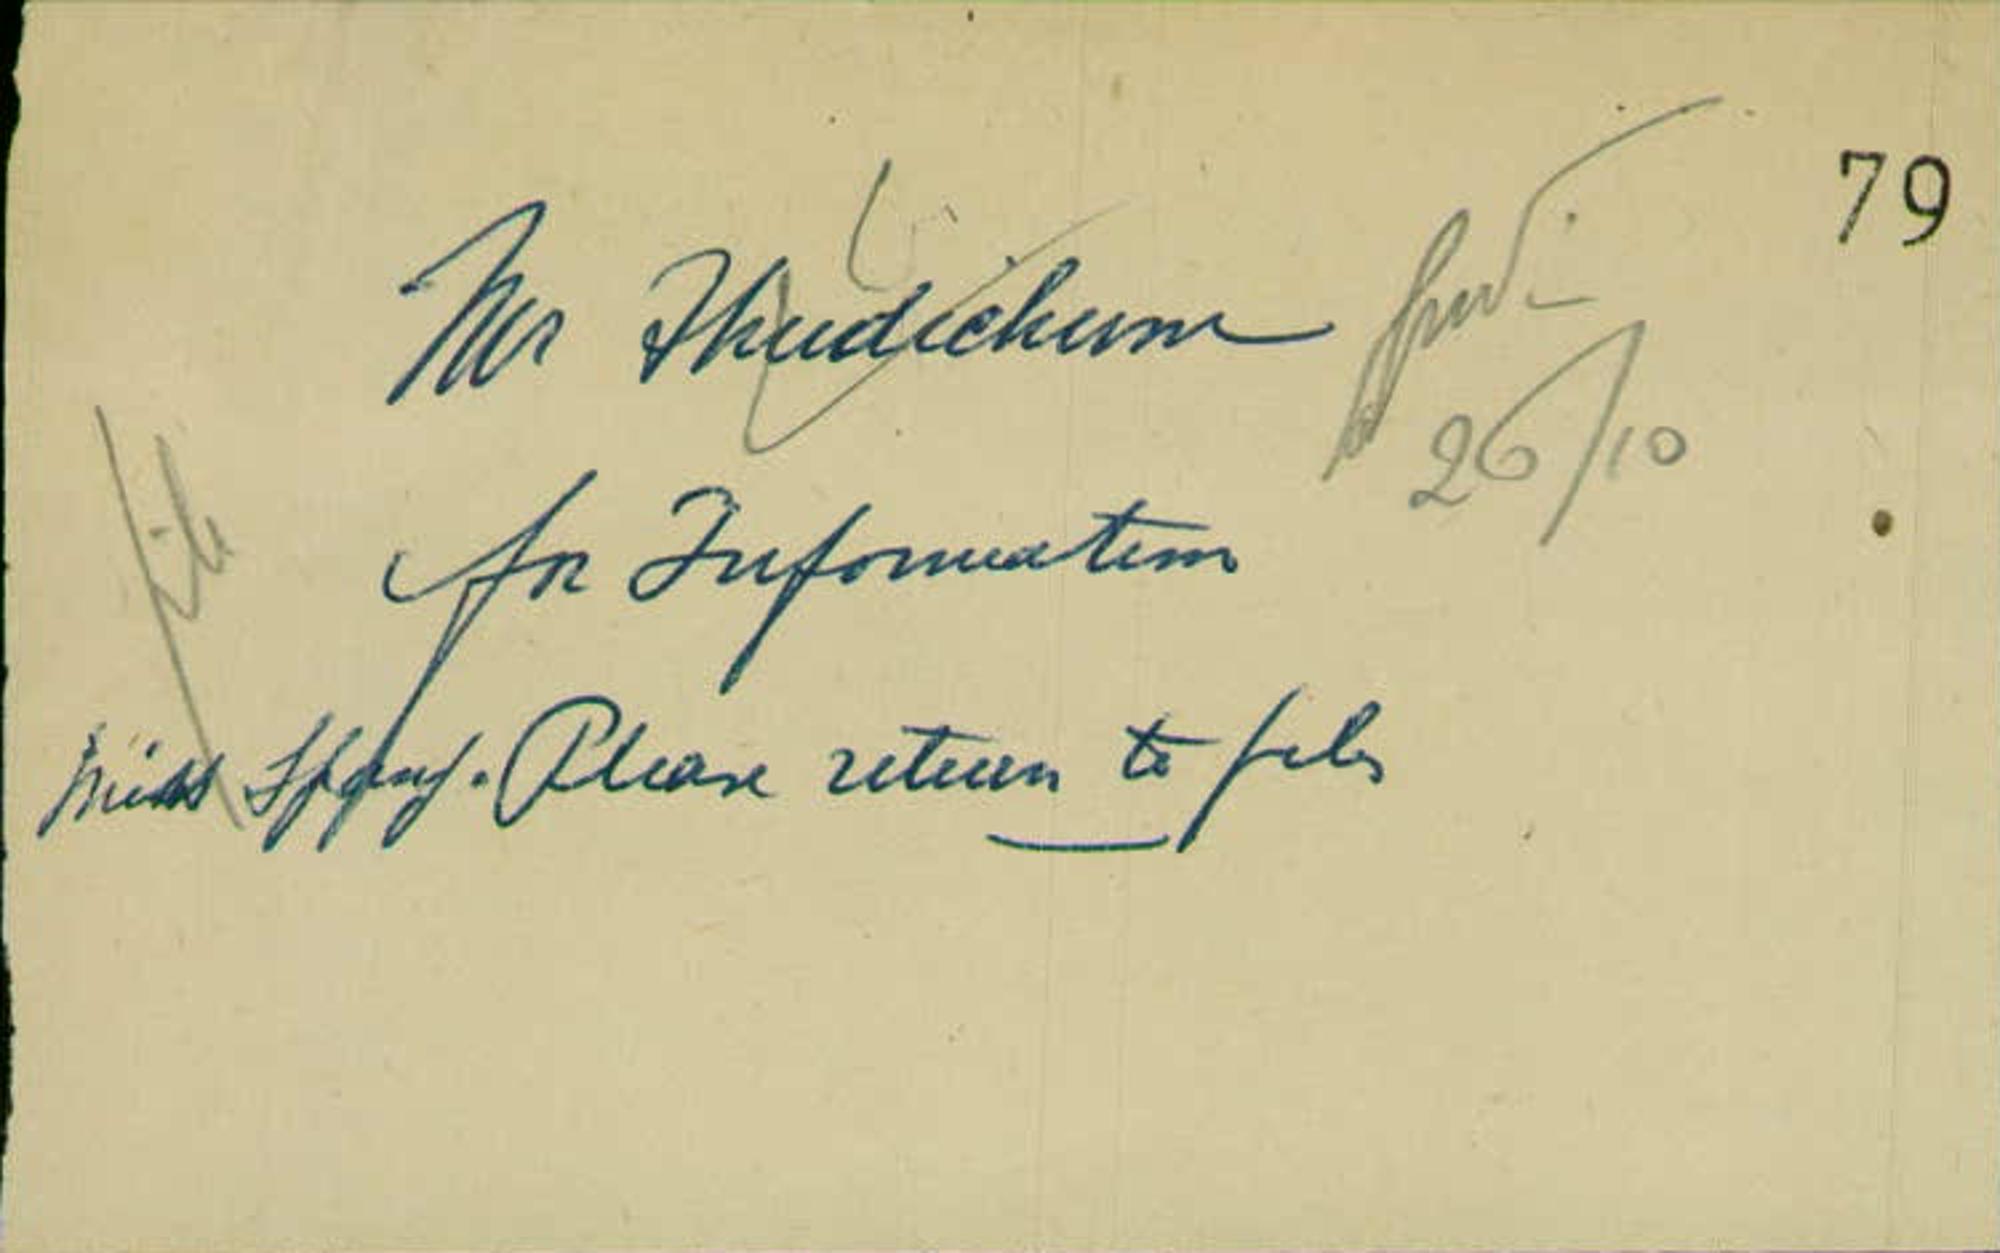 79
Mr Thudichum
26/10
for Information
file
Miss Please return to files